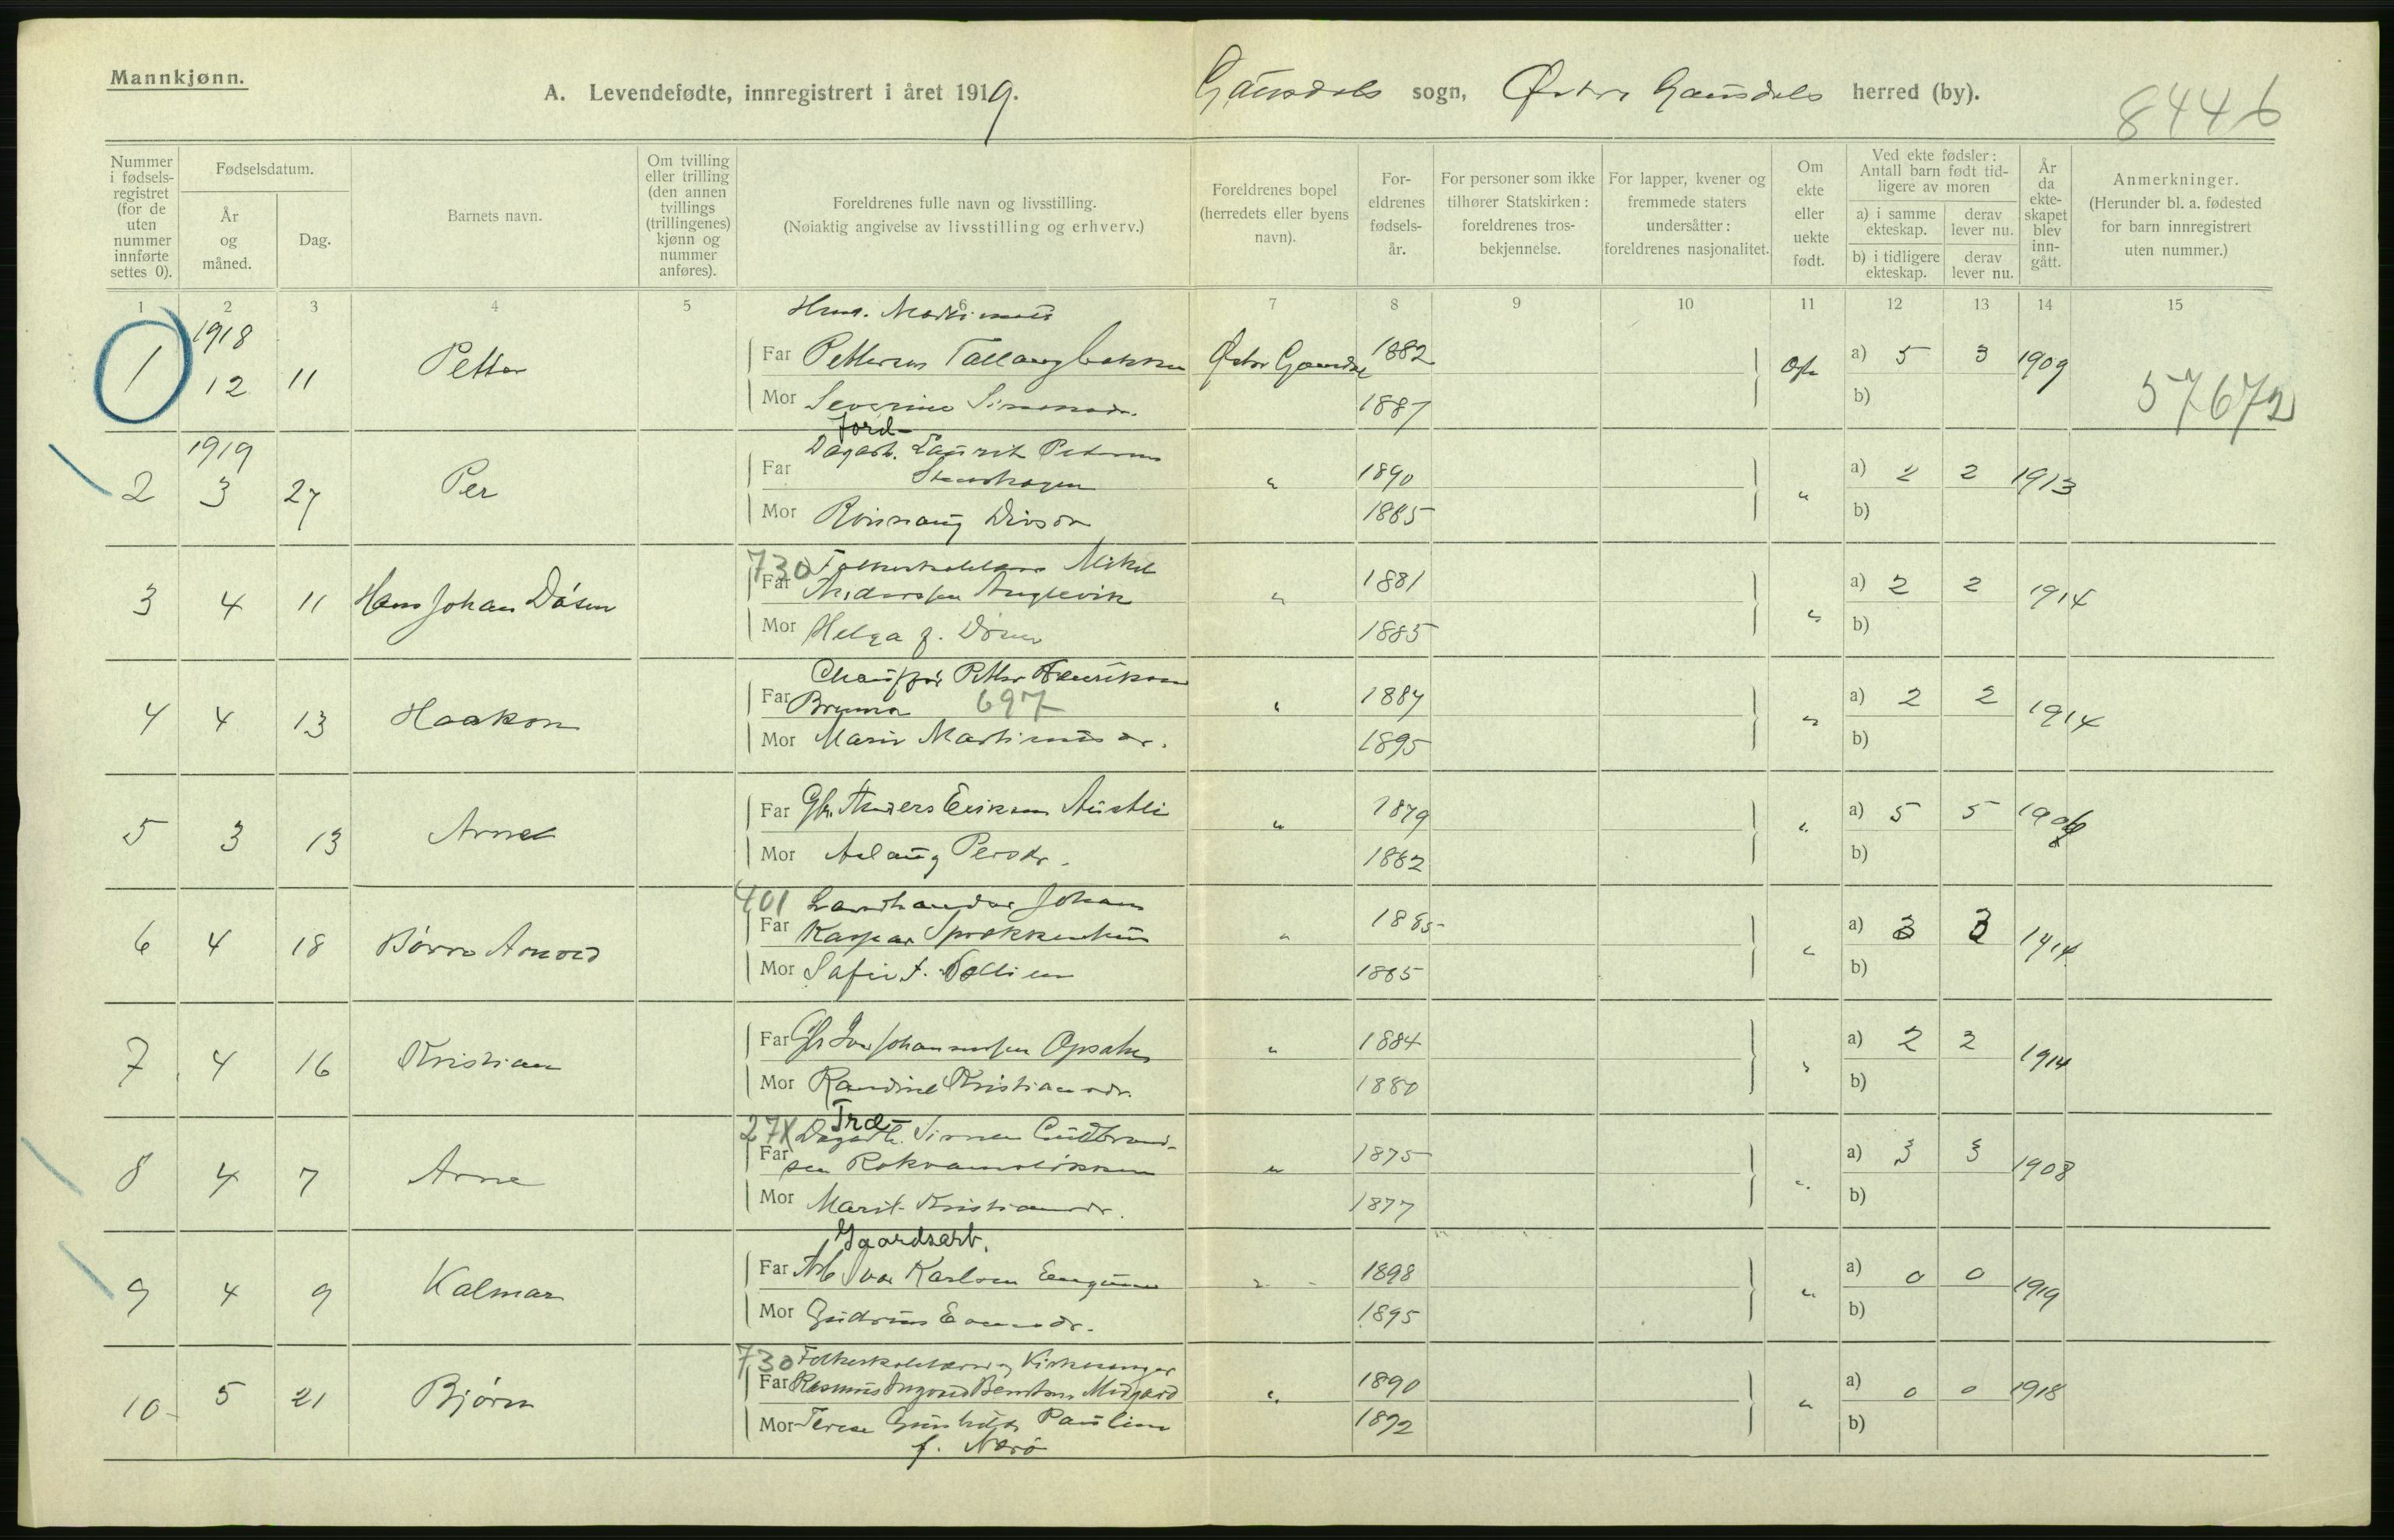 Mannkjønn.
A. Levendefødte, innregistrert i året 1919.
Gausdals sogn, Østre Gausdals herred (by).
8446
Nummer i fødsels-registret (for de uten nummer innførte settes 0).
Fødselsdatum.
År og måned.
Dag.
Barnets navn.
Om tvilling eller trilling (den annen tvillings (trillingenes) kjønn og nummer anføres).
Foreldrenes fulle navn og livsstilling.
(Nøiaktig angivelse av livsstilling og erhverv.)
Foreldrenes bopel (herredets eller byens navn).
For-eldrenes fødsels-år.
For personer som ikke tilhører Statskirken: foreldrenes tros-bekjennelse.
For lapper, kvener og fremmede staters undersåtter: foreldrenes nasjonalitet.
Om ekte eller uekte født.
Ved ekte fødsler: Antall barn født tid-ligere av moren
a) i samme ekteskap.
derav lever nu.
b) i tidligere ekteskap.
derav lever nu.
År da ekte-skapet blev inn-gått.
Anmerkninger.
(Herunder bl. a. fødested for barn innregistrert uten nummer.)
1 2 3 4 5 6 7 8 9 10 11 12 13 14 15
Martinus
1 1918 12 11 Petter
Far Østre Gausdal 1882 a) 5 3 1909
Mor Severine Simensdr. 1887 b)
57672
Jord-
2 1919 3 27 Per
Dagarb. Laurits Petersen
Far Stenshagen " 1890 " a) 2 2 1913
Mor Rønnaug 1885 b)
730 Folkeskolelærer Mikel
3 4 11 Hans Johan Døsen
Far Andersen " 1881 " a) 2 2 1914
Mor Helga f. Døsen 1885 b)
Chauffør Petter Henriksen
4 4 13 Haakon
Far 697 " 1887 " a) 2 2 1914
Mor Marie Martinusdr. 1895 b)
5 3 13 Arne
Far Gbr. Anders Eriksen Austli " 1879 " a) 5 5
Mor Aslaug Persdr. 1882 b)
401 Landhandler Johan
6 4 18 Børre Arnold
Far Kaspar " 1885 " a) 3 3 1914
Mor 1885 b)
7 4 16 Kristian
Far Gbr Iver Johannessen Opsahl " 1884 " a) 2 2 1914
Mor Randine Kristiansdr. 1880 b)
Træ-
27X Dagarb. Simen Gudbrand-
8 4 7 Arne
Far sen " 1875 " a) 3 3 1908
Mor Marit Kristiansdr. 1877 b)
Gaardsarb.
9 4 9 Kalmar
Far Arb. Ivar Karlsen " 1898 " a) 0 0 1919
Mor Gudrun 1895 b)
730 Folkeskolelærer og Kirkesanger
10 5 21 Bjørn
Far Rasmus Ingvald Berntsen Midgard " 1890 " a) 0 0 1918
Mor Terese Gunhilda Pauline 1892 b)
f. Nerø